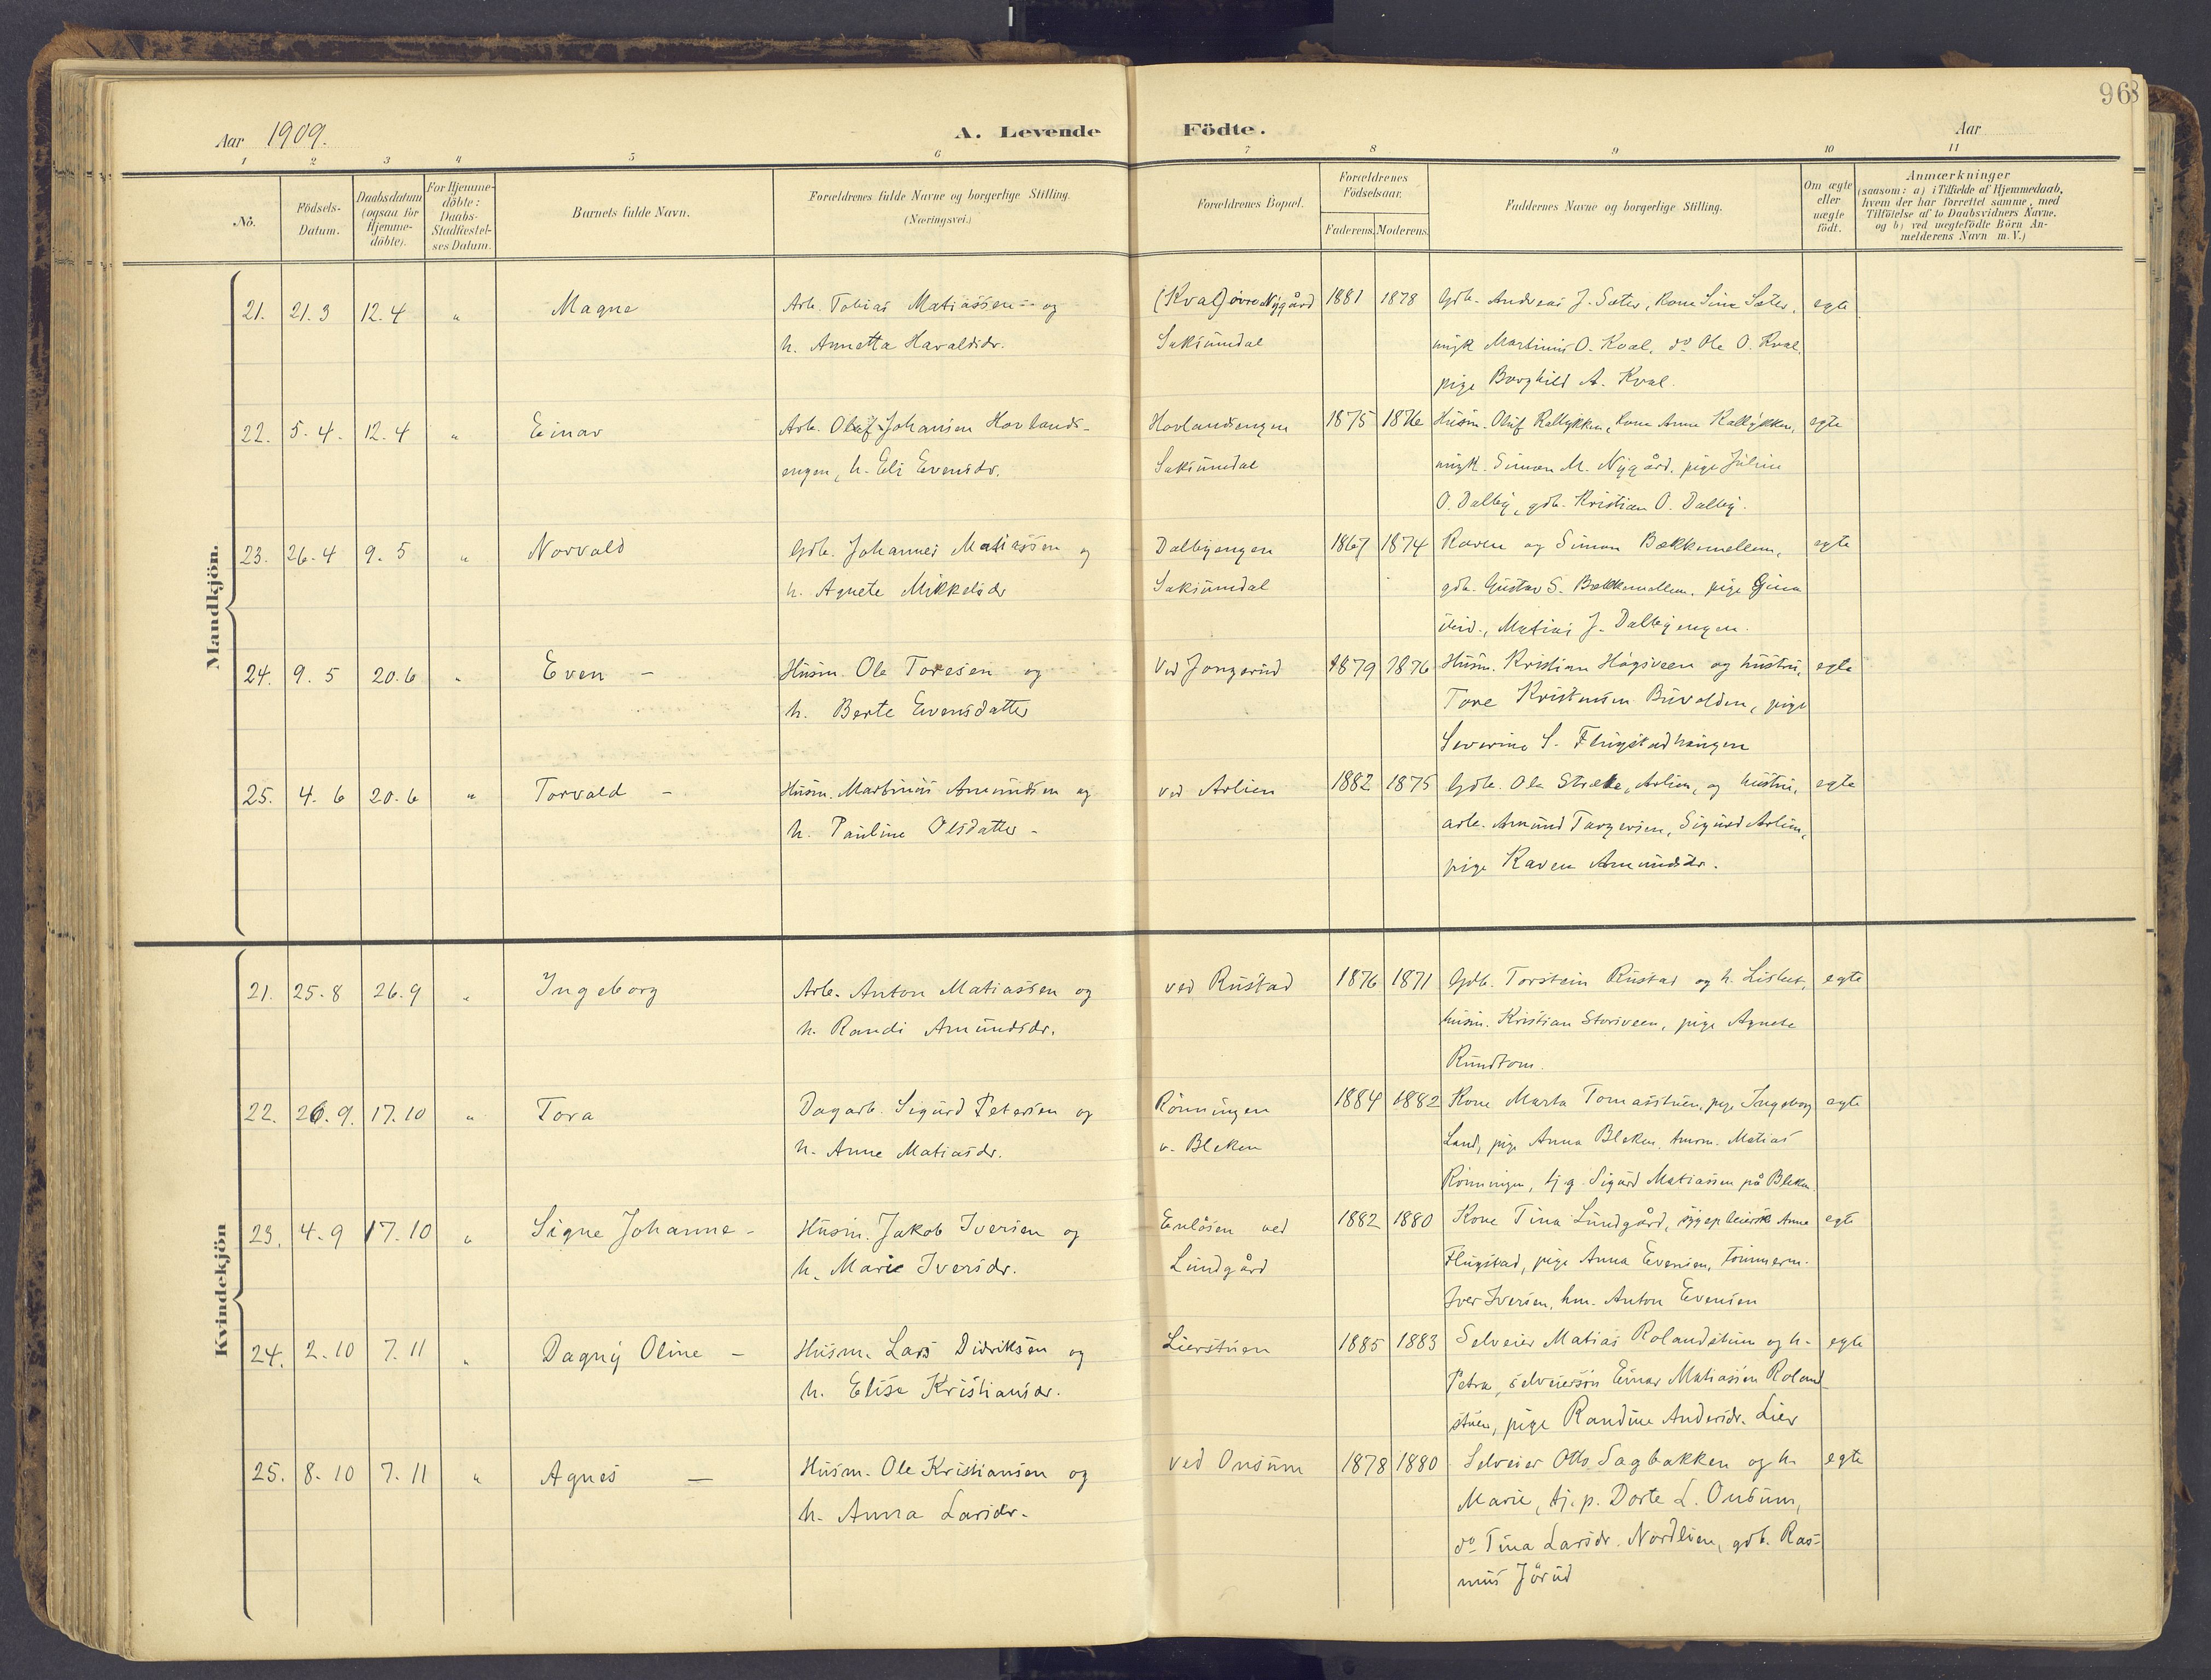 96
Aar 1909.
A. Levende Födte.
Aar
1 2 3 4 5 6 7 8 9 10 11
No.
Födsels-Datum.
Daabsdatum (ogsaa for Hjemme-döbte).
For Hjemme-döbte: Daabs-Stadfæstel-ses Datum.
Barnets fulde Navn.
Forældrenes fulde Navne og borgerlige Stilling.
(Næringsvei.)
Forældrenes Bopæl.
Forældrenes Födselsaar.
Faderens. Moderens.
Faddernes Navne og borgerlige Stilling.
Om ægte eller uægte födt.
Anmærkninger
(saasom: a) i Tilfælde af Hjemmedaab, hvem der har forrettet samme, med Tilföielse af to Daabsvidners Navne, og b) ved uægtefödte Börn An-melderens Navn m. V.)
Mandkjön.
21. 21.3 12.4 " Magne Arb. Tobias Matiassen og (Kval) övre Nygård 1881 1878 Gdb. Andreas J. Sæter, kone Sina Sæter, egte
h. Annetta Haraldsdr. Saksumdal ungk Martinius O. Kval, do Ole O. Kval,
pige Borghild A. Kval.
22. 5.4. 12.4 " Einar Arb. Olaf Johansen Hovlands- Hovlandsengen 1875 1876 Husm. Oluf Kallykken, kone Anne Kallykken, egte
engen, h. Eli Evensdr. Saksumdal ungk. Simen M. Nygård, pige Juline
O. Dalby, gdb. Kristian O. Dalby.
23. 26.4 9.5 " Norvald Gdb. Johannes Matiassen og Dalbyengen 1867 1874 Karen og Simon Bækkemellem, egte
h. Agnete Mikkelsdr Saksumdal gdb. Gustav S. Bækkemellem, pige Gina
ibid., Matias J. Dalbyengen.
24. 9.5 20.6 " Even - Husm. Ole Toresen og Ved Jongerud 1879 1876 Husm. Kristian Hågsveen og hustru, egte
h. Berte Evensdatter Tore Kristensen Burolden, pige
Severine S. Flugstadhaugen
25. 4.6 20.6 " Torvald - Husm. Martinus Amundsen og ved Arlien 1882 1875 Gdb. Ole Stræte, Arlien, og hustru, egte
h. Pauline Olsdatter - arb. Amund Torgersen, Sigurd Arlien,
pige Karen Amundsdr.
Kvindekjön
21. 25.8 26.9 " Ingeborg Arb. Anton Matiassen og ved Rustad 1876 1871 Gdb. Torstein Rustad og h. Lisbet, egte
h. Randi Amundsdr. husm. Kristian Storsveen, pige Agnete
Rundtom.
22. 26.9. 17.10 " Tora Dagarb. Sigurd Petersen og Rönningen 1884 1882 Kone Marta Tomasstuen, pige Ingeborg egte
h. Anne Matiasdr. v. Bleken Land, pige Anna Bleken, husm. Matias
Rönningen, tj.g. Sigurd Matiassen på Bleken.
23. 4.9 17.10 " Signe Johanne - Husm. Jakob Iversen og Enlåsen ved 1882 1880 Kone Tina Lundgård, Anne egte
h. Marie Iversdr. Lundgård Flugstad, pige Anna Evensen, tömmerm.
Iver Iversen, hm. Anton Evensen
24. 2.10 7.11 " Dagny Oline - Husm. Lars Didriksen og Lierstuen 1885 1883 Selveier Matias Rolandstuen og h. egte
h. Elise Kristiansdr. Petra, selveiersön Einar Matiassen Roland-
stuen, pige Randine Andersdr. Lier
25. 8.10 7.11 " Agnes - Husm. Ole Kristiansen og ved Onsum 1878 1880 Selveier Otto Sagbakken og h. egte
h. Anna Larsdr. Marie, tj.p. Dorte L. Onsum,
do Tina Larsdr. Nordlien, gdb. Ras-
mus Jörud